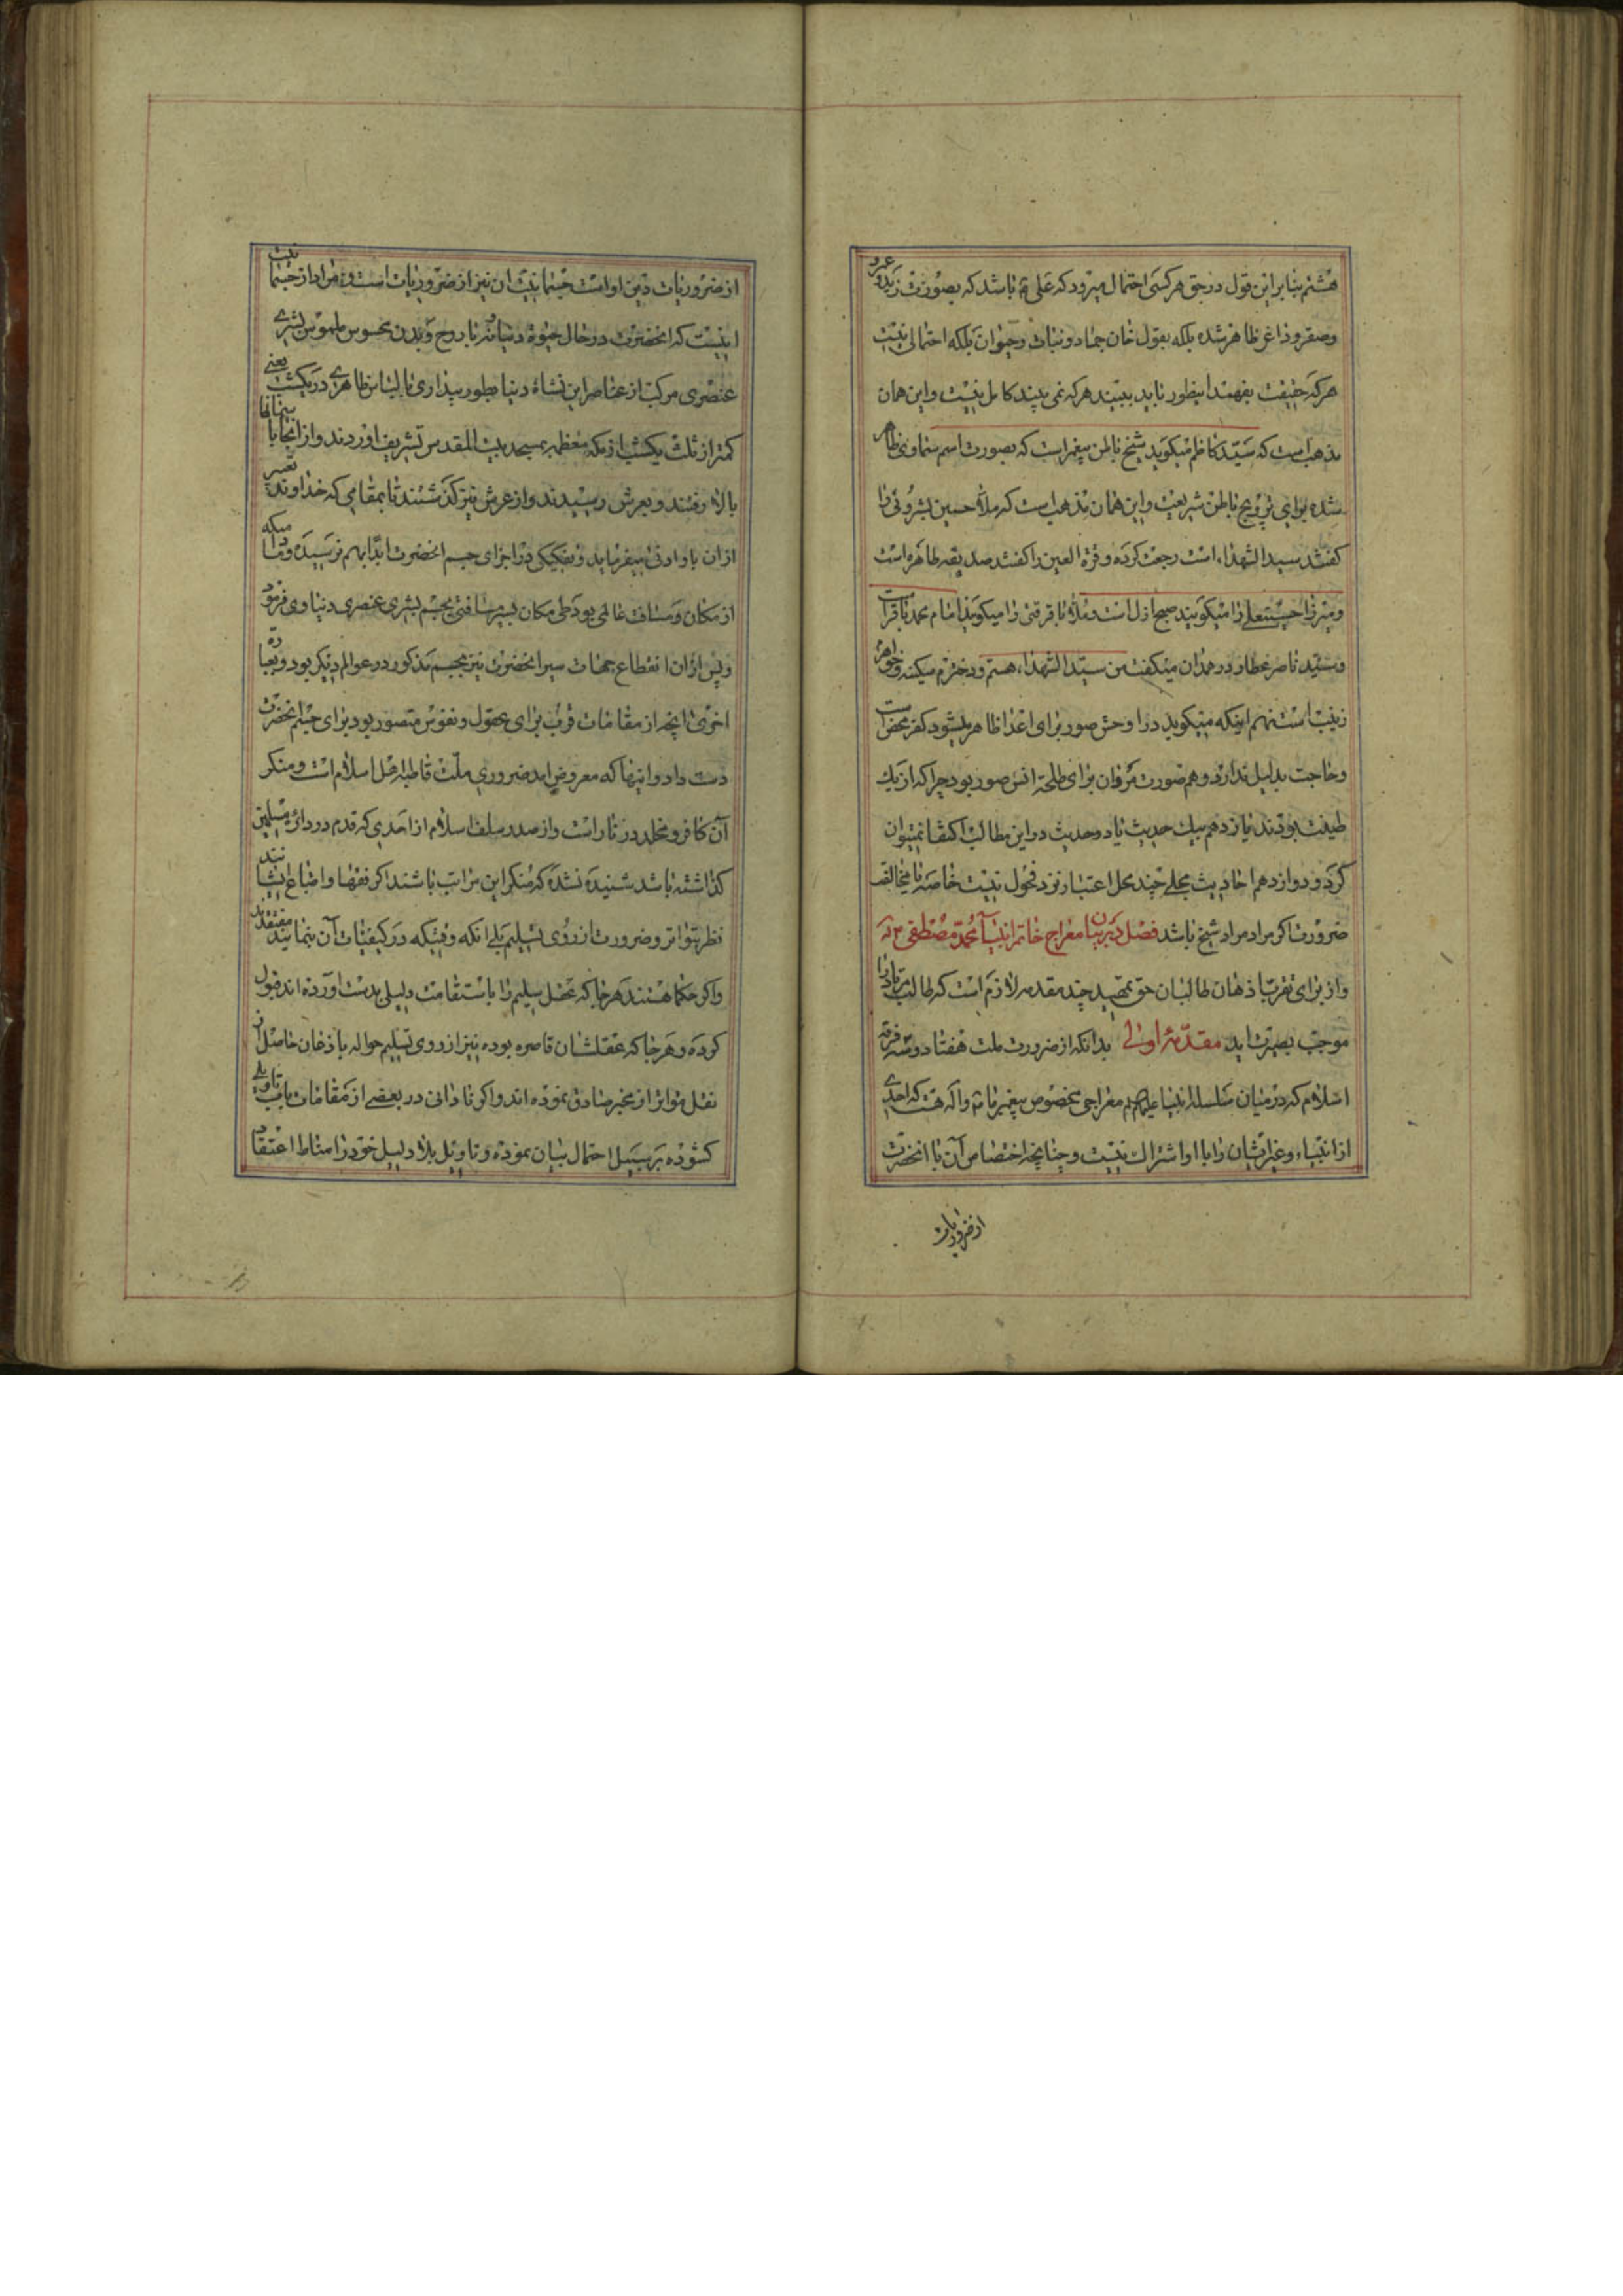 هشتم بنا بر این قول در حق هر کسی احتمال میرود که علی ع باشد که بصورت زید و عمرو
و صقر و زاغ ظاهر شده بلکه بقول خان جماد و نبات و حیوان بلکه احتمالی نیست
هر که حقیقت بفهمد اینطور باید ببیند هر که نمی بیند کامل نیست و این همان
مذهب است که سید کاظم میکوید شیخ باطن پیغمبر است که بصورت اسم سماوی ظاهر
شده برای ترویج باطن شریعت و این همان مذهب است که ملا حسین بشروئی را
کفتند سید الشهداء است رجعت کرده و قرة العین را کفتند صدیقه طاهره است
و میرزا حسینعلی را میکویند صبح ازل است و ملا باقر را میکویند امام محمد باقر است
و سید ناصر عطار در همدان میکفت من سید الشهداء هستم و دخترم سکینه و خواهرم
زینب است نهم اینکه میکوید در اوحش صور برای اعدا ظاهر میشود کفر محض است
و حاجت بدلیل ندارد دهم صورت مروان برای طلحه انس صور بود چرا که از یک
طینت بودند یازدهم بیک حدیث یا دو حدیث در این مطالب اکتفا نمیتوان
کرد و دوازدهم احادیث مجمله چند محل اعتبار نزد فحول نیست خاصه با مخالفت
ضرورت اکر مراد مراد شیخ باشد فصل در بیان معراج خاتم انبیا محمد مصطفی ص
و از برای تقریب اذهان طالبان حق تمهید چند مقدمه لازم است که طالب را
موجب بصیرت اید مقدمه اولی بدانکه از ضرورت ملت هفتاد و سه فرقه
اسلام که در میان سلسله انبیا علیهم معراجی مخصوص پیغمبر ما ص و اله هست که احدی
از انبیاء و غیر ایشان را با او اشتراک نیست و چنانچه اختصاص آن با انحضرت
از ضروریات
از ضروریات دین او است جسمانیت ان نیز از ضروریات است و مراد از جسمانیت
اینست که انحضرت در حال حیوة دنیا با روح و بدن محسوس ملموس بشری
عنصری مرکب از عناصر این نشاه دنیا بطور بیداری با لباس ظاهری در یکشب یعنی
کمتر از ثلث یکشب از مکه معظمه بمسجد بیت المقدس تشریف اوردند و از انجا با
بالا رفتند و بعرش رسیدند و از عرش نیز کذشتند تا بمقامی که خداوند تعبیر
از ان باو ادنی میفرماید و تفکیکی در اجزای جسم انحضرت ابدا بهم نرسیده و مادامیکه
از مکان و مسافت عالمی بود طی مکان بسیر مسافتی بجسم بشری عنصری دنیاوی فرمود
و پس از ان انقطاع جهات سیر انحضرت نیز بجسم مذکور در عوالم دیکر بود و بعبارة
اخری انچه از مقامات قرب برای عقول و نفوس متصور بود برای جسم انحضرت
دست داد و اینها که معروض امد ضروری ملت قاطبه اهل اسلام است و منکر
آن کافر و مخلد در نار است و از صدر سلف اسلام از احدی که قدم در دائره مسلمین
کذاشته باشد شنیده نشده که منکر این مراتب باشند اکر فقها و اتباع ایشانند
نظر بتواتر و ضرورت از روی تسلیم بلی انکه وقتیکه در کیفیات آن بنمایند معتقدند
و اکر حکما هستند هر جا که عقل سلیم را باستقامت دلیلی بدست آورده اند قبول
کرده و هر جا که عقلشان قاصره بوده نیز از روی تسلیم حواله باذعان حاصل از
نقل متواتر از مخبر صادق نموده اند و اکر نادانی در بعضی از مقامات باب تاویلی
کشوده بر سبیل احتمال بیان نموده و تاویل بلا دلیل خود را مناط اعتقاد